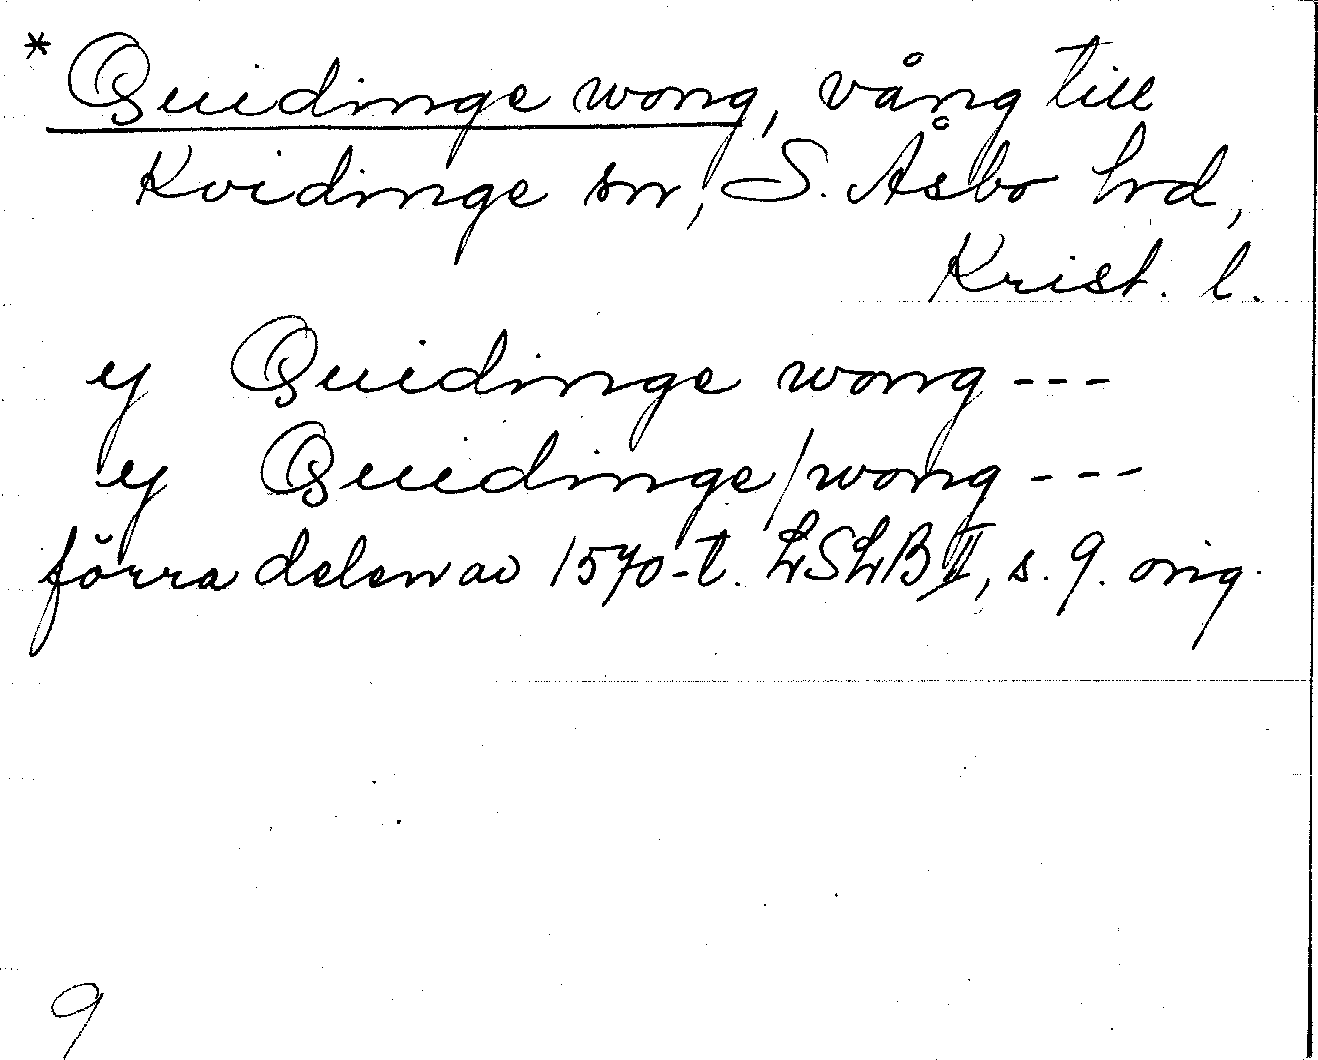 * Quidinge wong, vång till
Kvidinge sn, S. Åsbo hd,
Krist. l.
y Quidinge wong ---
y Quidinge/wong ---
förra delen av 1570-t. LSLB II, s. 9. orig.
9